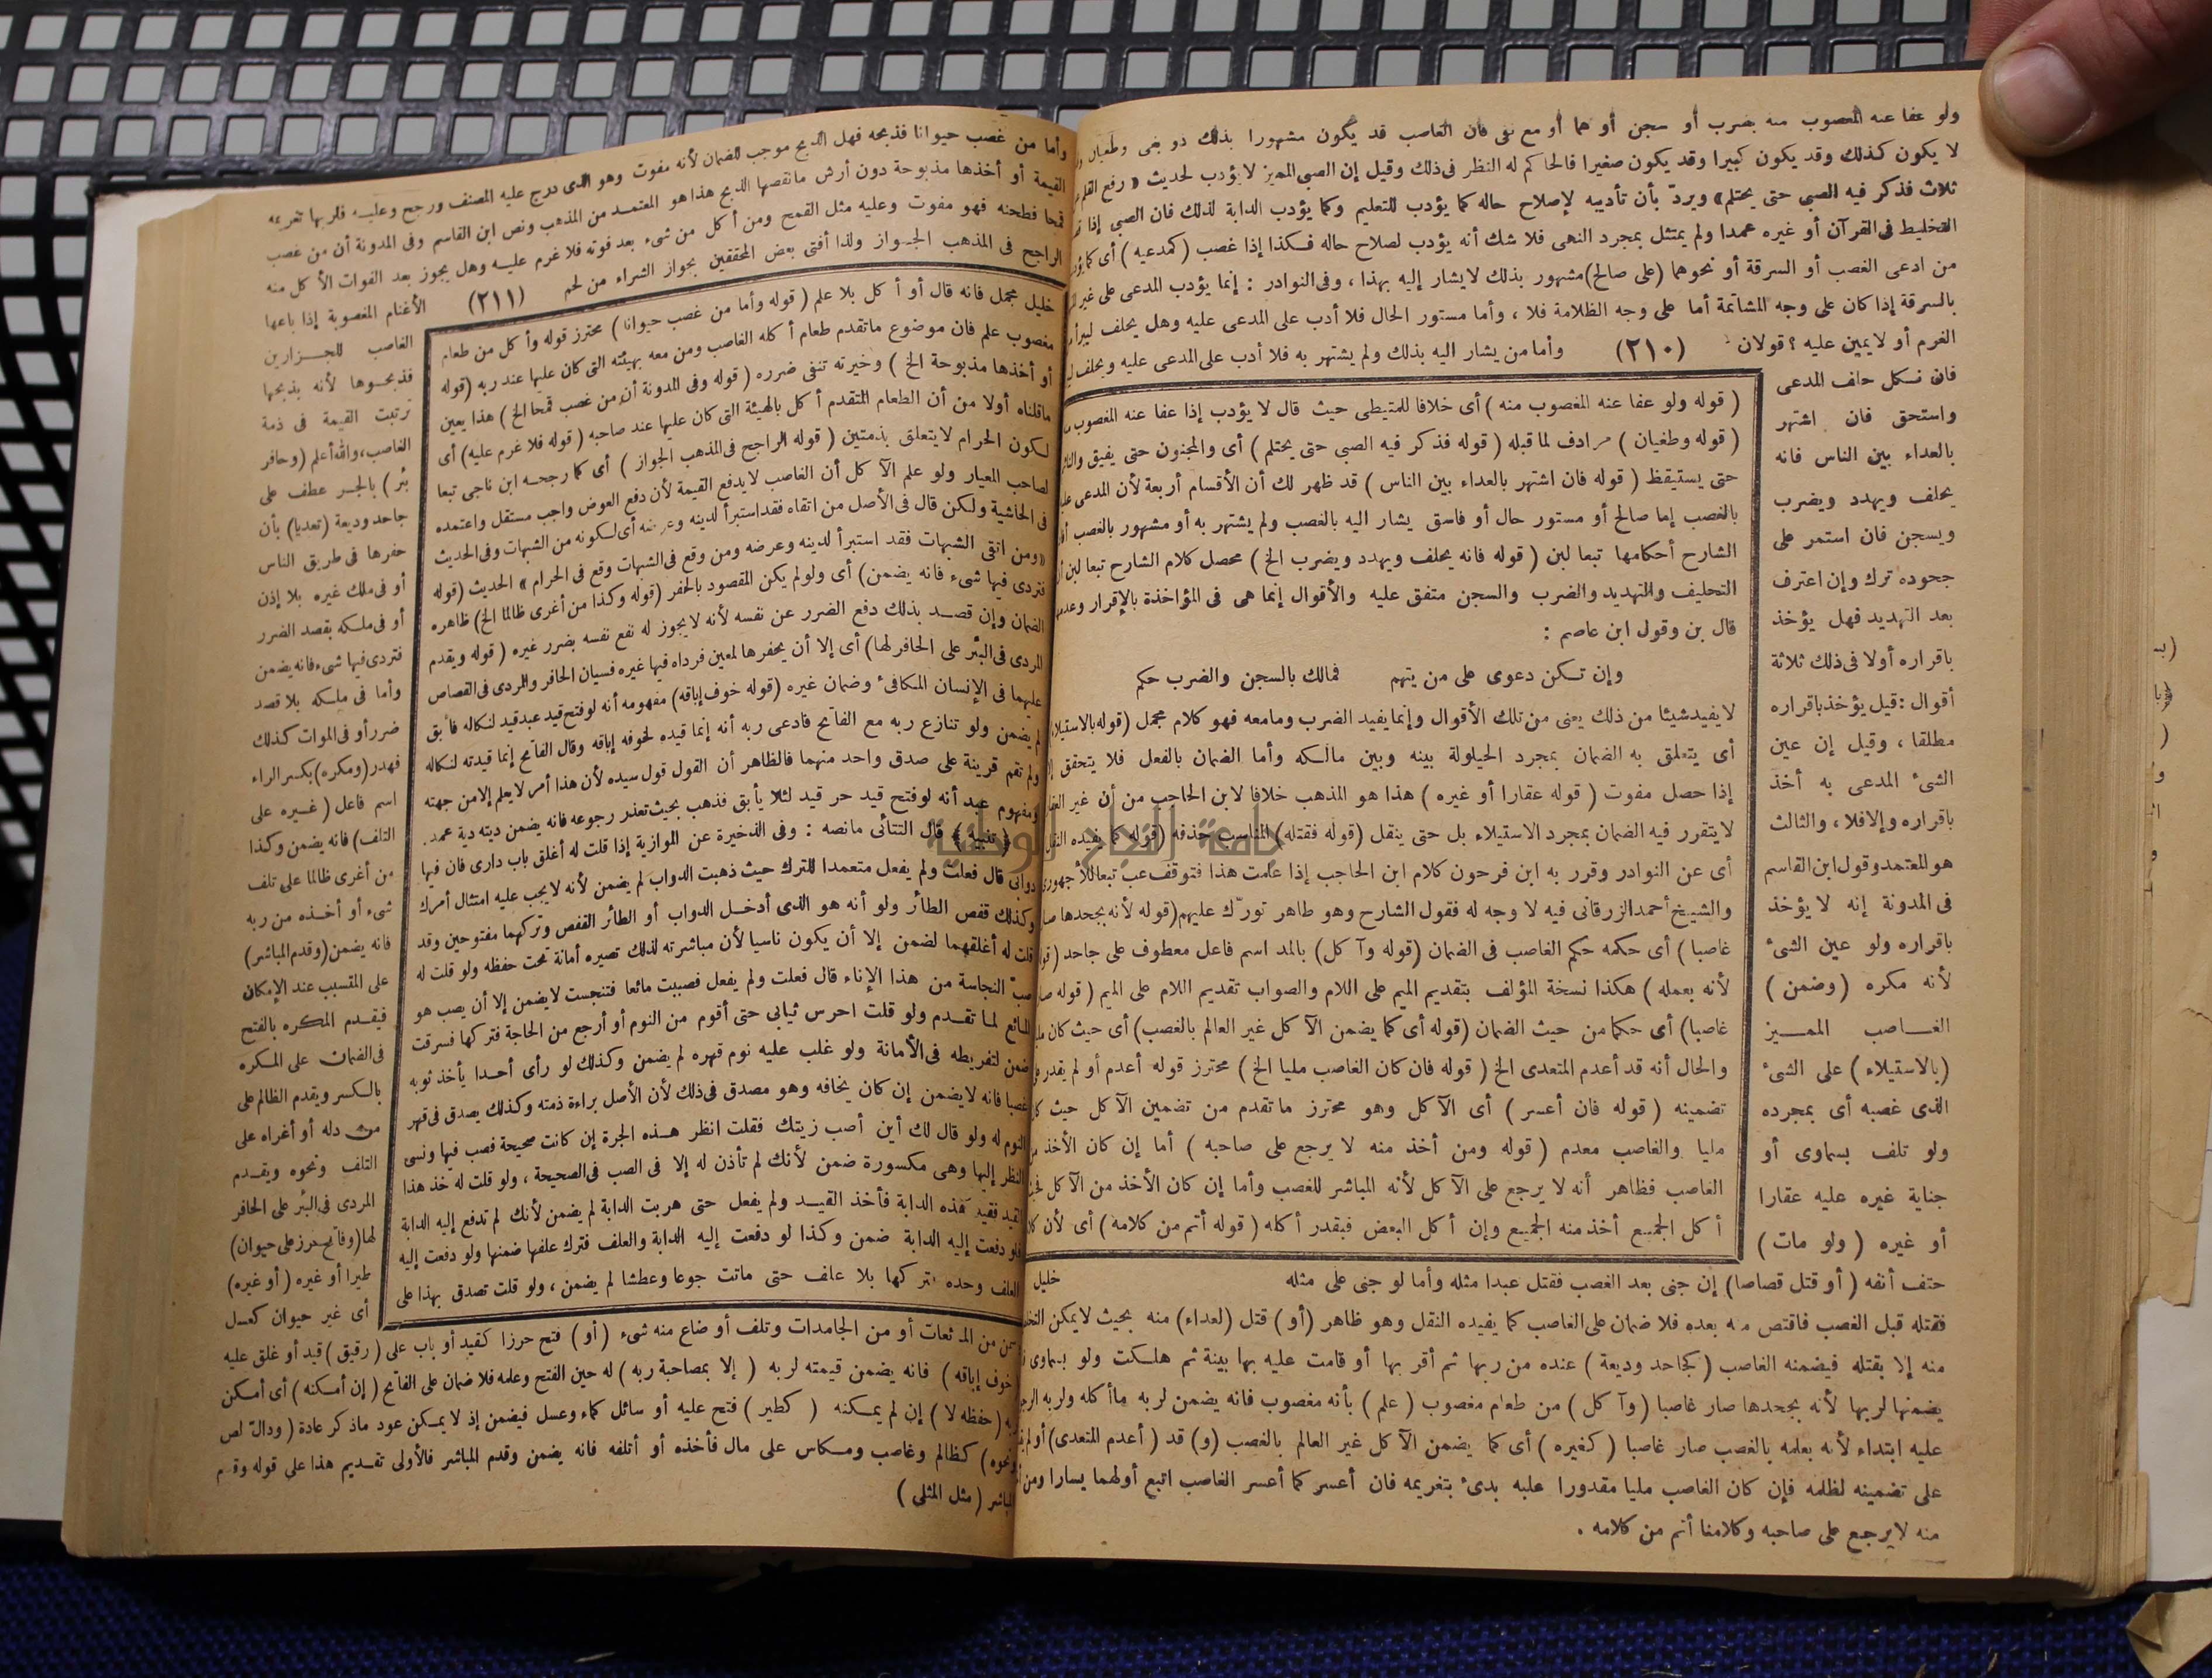 ولو عفا عنه المغصوب منه بضرب أو سجن أو هما أو مع نفى فان الغاصب قد يكون مشهورا بذلك ذو بغى وطغيان
لا يكون كذلك وقد يكون كبيرا وقد يكون صغيرا فالحاكم له النظر فى ذلك وقيل إن الصبى المميز لا يؤدب لحديث « رفع القلم
ثلاث فذكر فيه الصبى حتى يحتلم» ويردّ بأن تأديبه لإصلاح حاله كما يؤدب للتعليم وكما يؤدب الدابة لذلك فان الصبى إذا
التخليط فى القرآن أو غيره عمدا ولم يمتثل بمجرد النهى فلا شك أنه يؤدب لصلاح حاله فكذا إذا غصب (كمدعيه) أى كما
من ادعى الغصب أو السرقة أو نحوهما (على صالح) مشهور بذلك لا يشار إليه بهذا ، وفى النوادر : إنما يؤدب المدعى على غير
بالسرقة إذا كان على وجه المشاتمة أما على وجه الظلامة فلا ، وأما مستور الحال فلا أدب على المدعى عليه وهل يحلف ليبرأ
الغرم أو لا يمين عليه ؟ قولان (٢١٠) وأما من يشار اليه بذلك ولم يشتهر به فلا أدب على المدعى عليه ويحلف
فان نكل حلف المدعى
واستحق فان اشتهر
بالعداء بين الناس فانه
يحلف ويهدد ويضرب
ويسجن فان استمر على
جحوده ترك وإن اعترف
بعد التهديد فهل يؤخذ
باقراره أولا فى ذلك ثلاثة
أقوال : قيل يؤخذ باقراره
مطلقا ، وقيل إن عين
الشىء المدعى به أخذ
باقراره وإلا فلا ، والثالث
هو المعتمد وقول ابن القاسم
فى المدونة إنه لا يؤخذ
باقراره ولو عين الشىء
لأنه مكره ( وضمن )
الغاصب المميز
(بالاستيلاء) على الشىء
الذى غصبه أى بمجرده
ولو تلف بسماوى أو
جناية غيره عليه عقارا
أو غيره ( ولو مات )
( قوله ولو عفا عنه المغصوب منه ) أى خلافا للمتيطى حيث قال لا يؤدب إذا عفا عنه المغصوب
( قوله وطغيان ) مرادف لما قبله ( قوله فذكر فيه الصبى حتى يحتلم ) أى والمجنون حتى يفيق
حتى يستيقظ ( قوله فان اشتهر بالعداء بين الناس ) قد ظهر لك أن الأقسام أربعة لأن المدعى
بالغصب إما صالح أو مستور حال أو فاسق يشار اليه بالغصب ولم يشتهر به أو مشهور بالغصب
الشارح أحكامها تبعا لبن ( قوله فانه يحلف ويهدد ويضرب الخ ) محصل كلام الشارح تبعا لبن
التحليف والتهديد والضرب والسجن متفق عليه والأقوال إنما هى فى المؤاخذة بالإقرار
قال بن وقول ابن عاصم :
وإن تكن دعوى على من يتهم فمالك بالسجن والضرب حكم
لا يفيد شيئا من ذلك يعنى من تلك الأقوال وإنما يفيد الضرب وما معه فهو كلام مجمل (قوله بالاستيلاء
أى يتعلق به الضمان بمجرد الحيلولة بينه وبين مالكه وأما الضمان بالفعل فلا يتحقق
إذا حصل مفوت ( قوله عقارا أو غيره ) هذا هو المذهب خلافا لابن الحاجب من أن غير
لا يتقرر فيه الضمان بمجرد الاستيلاء بل حتى ينقل (قوله فقتله) المناسب حذفه (قوله كما يفيده
أى عن النوادر وقرر به ابن فرحون كلام ابن الحاجب إذا علمت هذا فتوقف عب تبعا
والشيخ أحمد الزرقانى فيه لا وجه له فقول الشارح وهو ظاهر تورّك عليهم (قوله لأنه بجحدها
غاصبا ) أى حكمه حكم الغاصب فى الضمان (قوله وآكل) بالمد اسم فاعل معطوف على جاحد
لأنه بعمله ) هكذا نسخة المؤلف بتقديم الميم على اللام والصواب تقديم اللام على الميم ( قوله
غاصبا) أى حكما من حيث الضمان (قوله أى كما يضمن الآكل غير العالم بالغصب) أى حيث كان
والحال أنه قد أعدم المتعدى الخ ( قوله فان كان الغاصب مليا الخ ) محترز قوله أعدم أو لم يقدر
تضمينه ( قوله فان أعسر ) أى الآكل وهو محترز ما تقدم من تضمين الآكل حيث
مليا والغاصب معدم ( قوله ومن أخذ منه لا يرجع على صاحبه ) أما إن كان الأخذ
الغاصب فظاهر أنه لا يرجع على الآكل لأنه المباشر للغصب وأما إن كان الأخذ من الآكل
أكل الجميع أخذ منه الجميع وإن أكل البعض فبقدر أكله ( قوله أتم من كلامه ) أى لأن
خليل
حتف أنفه ( أو قتل قصاصا ) إن جنى بعد الغصب فقتل عبدا مثله وأما لو جنى على مثله
فقتله قبل الغصب فاقتص منه بعده فلا ضمان على الغاصب كما يفيده النقل وهو ظاهر (أو) قتل (لعداء) منه بحيث لا يمكن
منه إلا بقتله فيضمنه الغاصب ( كجاحد وديعة ) عنده من ربها ثم أقر بها أو قامت عليه بها بينة ثم هلكت ولو بسماوى
يضمنها لربها لأنه بجحدها صار غاصبا ( وآكل ) من طعام مغصوب ( علم ) بأنه مغصوب فانه يضمن لربه ما أكله ولربه
عليه ابتداء لأنه بعلمه بالغصب صار غاصبا ( كغيره ) أى كما يضمن الآكل غير العالم بالغصب (و) قد ( أعدم المتعدى)
على تضمينه لظلمه فإن كان الغاصب مليا مقدورا عليه بدىء بتغريمه فان أعسر كما أعسر الغاصب اتبع أولهما يسارا ومن
منه لا يرجع على صاحبه وكلامنا أتم من كلامه .
وأما من غصب حيوانا فذبحه فهل الذبح موجب للضمان لأنه مفوت وهو الذى درج عليه المصنف ورجح وعليه فلربها تغريمه
القيمة أو أخذها مذبوحة دون أرش ما نقصها الذبح هذا هو المعتمد من المذهب ونص ابن القاسم وفى المدونة أن من غصب
قمحا فطحنه فهو مفوت وعليه مثل القمح ومن أكل من شىء بعد فوته فلا غرم عليه وهل يجوز بعد الفوات الأكل منه
الراجح فى المذهب الجواز ولذا أفتى بعض المحققين بجواز الشراء من لحم (٢١١) الأغنام المغصوبة إذا باعها
الغاصب للجزارين
فذبحوها لأنه بذبحها
ترتبت القيمة فى ذمة
الغاصب ، والله أعلم ( وحافر
بئر ) بالجر عطف على
جاحد وديعة (تعديا) بأن
حفرها فى طريق الناس
أو فى ملك غيره بلا إذن
أو فى ملكه بقصد الضرر
فتردى فيها شىء فانه يضمن
وأما فى ملكه بلا قصد
ضرر أو فى الموات كذلك
فهدر (ومكره) بكسر الراء
اسم فاعل ( غيره على
التلف) فانه يضمن وكذا
من أغرى ظالما على تلف
شىء أو أخذه من ربه
فانه يضمن (وقدم المباشر)
على المتسبب عند الإمكان
فيقدم المكره بالفتح
فى الضمان على المكره
بالكسر ويقدم الظالم على
من دله أو أغراه على
التلف ونحوه ويقدم
المردى فى البئر على الحافر
لها (وفاتح حرز على حيوان)
طيرا أو غيره ( أو غيره)
أى غير حيوان كعسل
خليل مجمل فانه قال أو أكل بلا علم ( قوله وأما من غصب حيوانا ) محترز قوله وأكل من طعام
مغصوب علم فان موضوع ما تقدم طعام أكله الغاصب ومن معه بهيئته التى كان عليها عند ربه (قوله
أو أخذها مذبوحة الخ ) وخيرته تنفى ضرره ( قوله وفى المدونة أن من غصب قمحا الخ ) هذا يعين
ما قلناه أولا من أن الطعام المتقدم أكل بالهيئة التى كان عليها عند صاحبه ( قوله فلا غرم عليه) أى
لكون الحرام لا يتعلق بذمتين ( قوله الراجح فى المذهب الجواز ) أى كما رجحه ابن ناجى تبعا
لصاحب المعيار ولو علم الآكل أن الغاصب لا يدفع القيمة لأن دفع العوض واجب مستقل واعتمده
فى الحاشية ولكن قال فى الأصل من اتقاه فقد استبرأ لدينه وعرضه أى لكونه من الشبهات وفى الحديث
«ومن اتقى الشبهات فقد استبرأ لدينه وعرضه ومن وقع فى الشبهات وقع فى الحرام» الحديث (قوله
فتردى فيها شىء فانه يضمن) أى ولو لم يكن المقصود بالحفر (قوله وكذا من أغرى ظالما الخ) ظاهره
الضمان وإن قصد بذلك دفع الضرر عن نفسه لأنه لا يجوز له نفع نفسه بضرر غيره ( قوله ويقدم
المردى فى البئر على الحافر لها) أى إلا أن يحفرها لمعين فرداه فيها غيره فسيان الحافر والمردى فى القصاص
عليهما فى الإنسان المكافىء وضمان غيره (قوله خوف إباقه) مفهومه أنه لو فتح قيد عبد قيد لنكاله فأبق
لم يضمن ولو تنازع ربه مع الفاتح فادعى ربه أنه إنما قيده لخوف إباقه وقال الفاتح إنما قيدته لنكاله
ولم تقم قرينة على صدق واحد منهما فالظاهر أن القول قول سيده لأن هذا أمر لا يعلم إلا من جهته
ومفهوم عبد أنه لو فتح قيد حر قيد لئلا يأبق فذهب بحيث تعذر رجوعه فانه يضمن ديته دية عمد .
﴿تنبيه﴾ قال التتائى ما نصه : وفى الذخيرة عن الموازية إذا قلت له أغلق باب دارى فان فيها
دوابى قال فعلت ولم يفعل متعمدا للترك حيث ذهبت الدواب لم يضمن لأنه لا يجب عليه امتثال أمرك
وكذلك قفص الطائر ولو أنه هو الذى أدخل الدواب أو الطائر القفص وتركهما مفتوحين وقد
قلت له أغلقهما لضمن إلا أن يكون ناسيا لأن مباشرته لذلك تصيره أمانة تحت حفظه ولو قلت له
صبّ النجاسة من هذا الإناء قال فعلت ولم يفعل فصببت مائعا فتنجست لا يضمن إلا أن يصب هو
المائع لما تقدم ولو قلت احرس ثيابى حتى أقوم من النوم أو أرجع من الحاجة فتركها فسرقت
ضمن لتفريطه فى الأمانة ولو غلب عليه نوم قهره لم يضمن وكذلك لو رأى أحدا يأخذ ثوبه
غصبا فانه لا يضمن إن كان يخافه وهو مصدق فى ذلك لأن الأصل براءة ذمته وكذلك يصدق فى قهر
النوم له ولو قال لك أين أصب زيتك فقلت انظر هذه الجرة إن كانت صحيحة فصب فيها ونسى
النظر إليها وهى مكسورة ضمن لأنك لم تأذن له إلا فى الصب فى الصحيحة ، ولو قلت له خذ هذا
القيد فقيد هذه الدابة فأخذ القيد ولم يفعل حتى هربت الدابة لم يضمن لأنك لم تدفع إليه الدابة
فلو دفعت إليه الدابة ضمن وكذا لو دفعت إليه الدابة والعلف فترك علفها ضمنها ولو دفعت إليه
العلف وحده فتركها بلا علف حتى ماتت جوعا وعطشا لم يضمن ، ولو قلت تصدق بهذا على
وسمن من المائعات أو من الجامدات وتلف أو ضاع منه شىء ( أو ) فتح حرزا كقيد أو باب على ( رقيق ) قيد أو غلق عليه
(خوف إباقه ) فانه يضمن قيمته لربه ( إلا بمصاحبة ربه ) له حين الفتح وعلمه فلا ضمان على الفاتح ( إن أمكنه ) أى أمكن
ربه ( حفظه لا ) إن لم يمكنه ( كطير ) فتح عليه أو سائل كماء وعسل فيضمن إذ لا يمكن عود ما ذكر عادة ( ودالّ لص
ونحوه) كظالم وغاصب ومكاس على مال فأخذه أو أتلفه فانه يضمن وقدم المباشر فالأولى تقديم هذا على قوله وقدم
المباشر ( مثل المثلى )
جامعة النجاح الوطنية